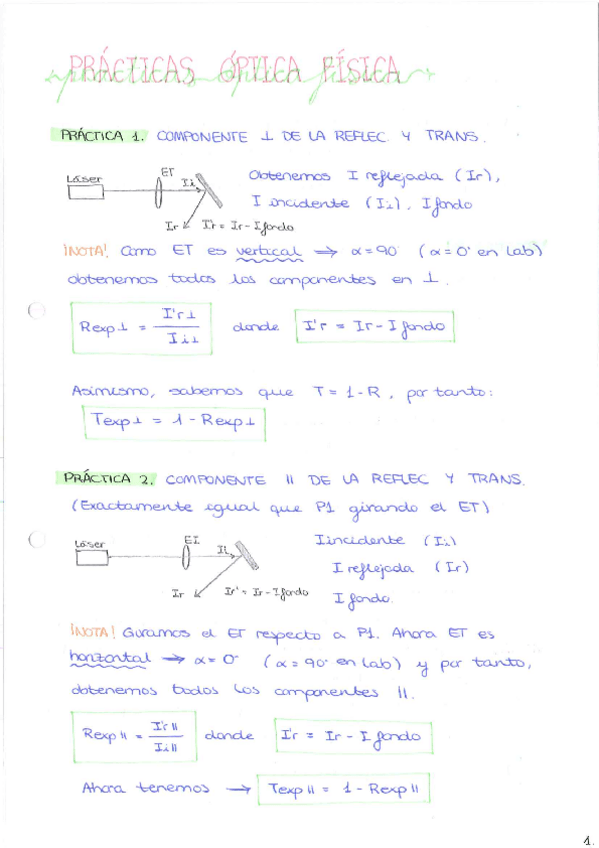 PRÁCTICAS ÓPTICA FÍSICA
prácticas óptica física
PRÁCTICA 1. COMPONENTE ⊥ DE LA REFLEC. Y TRANS.
Láser
ET
Ii
Ir
I'r = Ir - I fondo
Obtenemos I reflejada (Ir),
I incidente (Ii), I fondo
¡NOTA! Como ET es vertical → α=90° (α=0° en lab)
obtenemos todos los componentes en ⊥.
Rexp⊥ = I'r⊥ / Ii⊥ donde I'r = Ir - I fondo
Asimismo, sabemos que T = 1-R, por tanto:
Texp⊥ = 1 - Rexp⊥
PRÁCTICA 2. COMPONENTE II DE LA REFLEC Y TRANS.
(Exactamente igual que P1 girando el ET)
Láser
EI
Ii
Ir
Ir' = Ir - I fondo
I incidente (Ii)
I reflejada (Ir)
I fondo.
¡NOTA! Giramos el ET respecto a P1. Ahora ET es
horizontal → α=0° (α=90° en lab) y por tanto,
obtenemos todos los componentes II.
Rexp II = I'r II / Ii II donde I'r = Ir - I fondo
Ahora tenemos → Texp II = 1 - Rexp II
1.